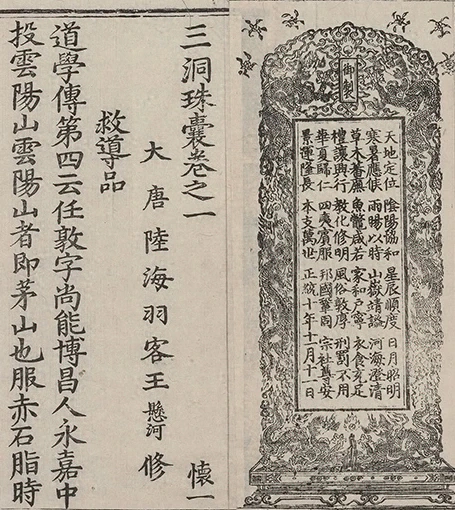 御製
天地定位 陰陽協和 星辰順度 日月昭明
寒暑應候 雨暘以時 山嶽靖謐 河海澄清
草木蕃廡 魚鼈咸若 家和戶寧 衣食充足
禮讓興行 教化修明 風俗敦厚 刑罰不用
華夏歸仁 四夷賓服 邦國鞏固 宗社尊安
景運隆長 本支萬世 正統十年十一月十一日
三洞珠囊卷之一 懷一
大唐陸海羽客王懸河修
救導品
道學傳第四云任敦字尚能博昌人永嘉中
投雲陽山雲陽山者即茅山也服赤石脂時